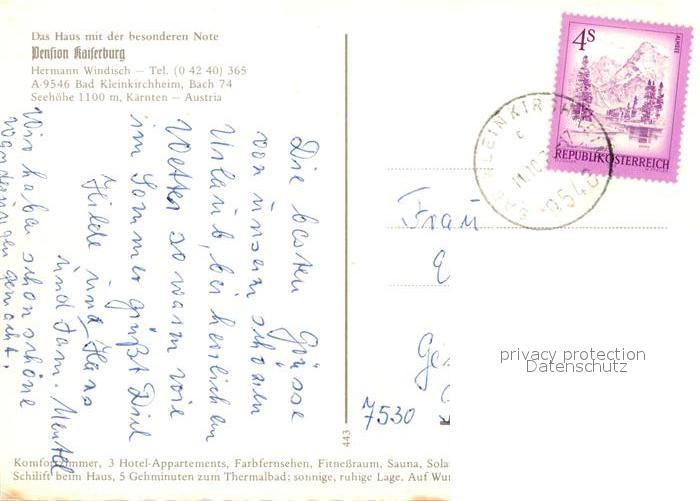 Das Haus mit der besonderen Note
Pension Kaiserburg
Hermann Windisch — Tel. (0 42 40) 365
A-9546 Bad Kleinkirchheim, Bach 74
Seehöhe 1100 m, Kärnten — Austria
Die besten Grüsse
von unserm schönen
Urlaub, bei herrlichem
Wetter so warm wie
im Sommer grüßt Dich
Hilde und Hans
und Fam.
Wir haben schon schöne
Wanderungen gemacht.
4S
ALMSEE
REPUBLIK ÖSTERREICH
BAD KLEINKIRCHHEIM
9546
Frau
7530
privacy protection
Datenschutz
443
Komfortzimmer, 3 Hotel-Appartements, Farbfernsehen, Fitneßraum, Sauna,
Schilift beim Haus, 5 Gehminuten zum Thermalbad; sonnige, ruhige Lage. Auf